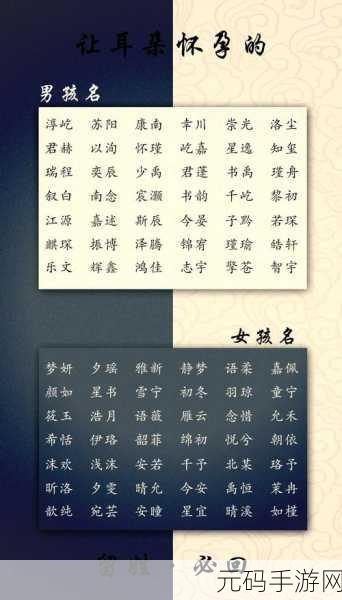 让耳朵怀孕的
男孩名
淳屹 苏阳 康南 幸川 崇光 洛尘
君赫 以洵 怀瑾 屹嘉 星逸 知玺
瑞程 奕辰 少禹 君蓬 书禹 瑾舟
叙白 南念 宸灏 书韵 千屹 黎初
江源 嘉述 斯辰 今晏 子黔 若琛
麒琛 振博 泽腾 锦宥 瑾瑜 皓轩
乐文 辉鑫 鸿佳 志宇 擎苍 智宇
女孩名
梦妍 夕瑶 雅新 静梦 语柔 嘉佩
颜如 星书 雪宁 初冬 羽琼 童宁
筱玉 浩月 语薇 雁云 念惜 允禾
希恬 伊珞 韶菲 绵初 悦兮 朝依
沫欢 浅沫 安若 千予 北某 珞予
昕洛 夕雯 晴允 今安 禹恒 茉冉
歆纯 宛芸 安瞳 星宜 晴溪 如槿
留姓·必回
元码手游网